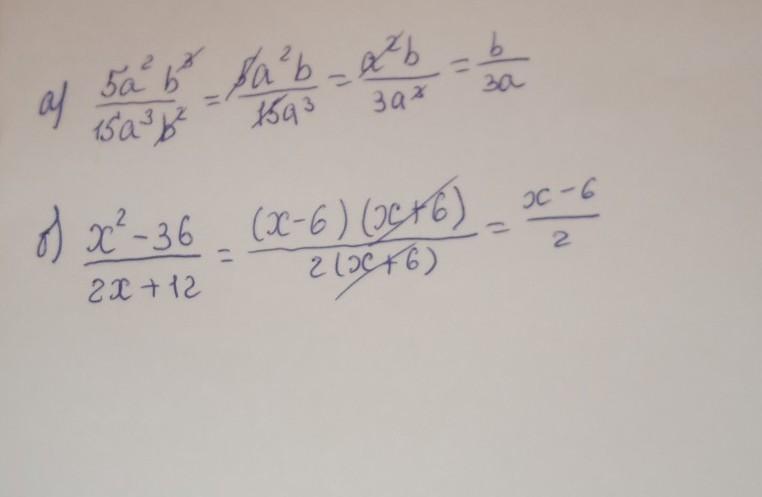 а) 5a²b³/15a³b² = 5a²b/15a³ = a²b/3a³ = b/3a
б) x²-36/2x+12 = (x-6)(x+6)/2(x+6) = x-6/2